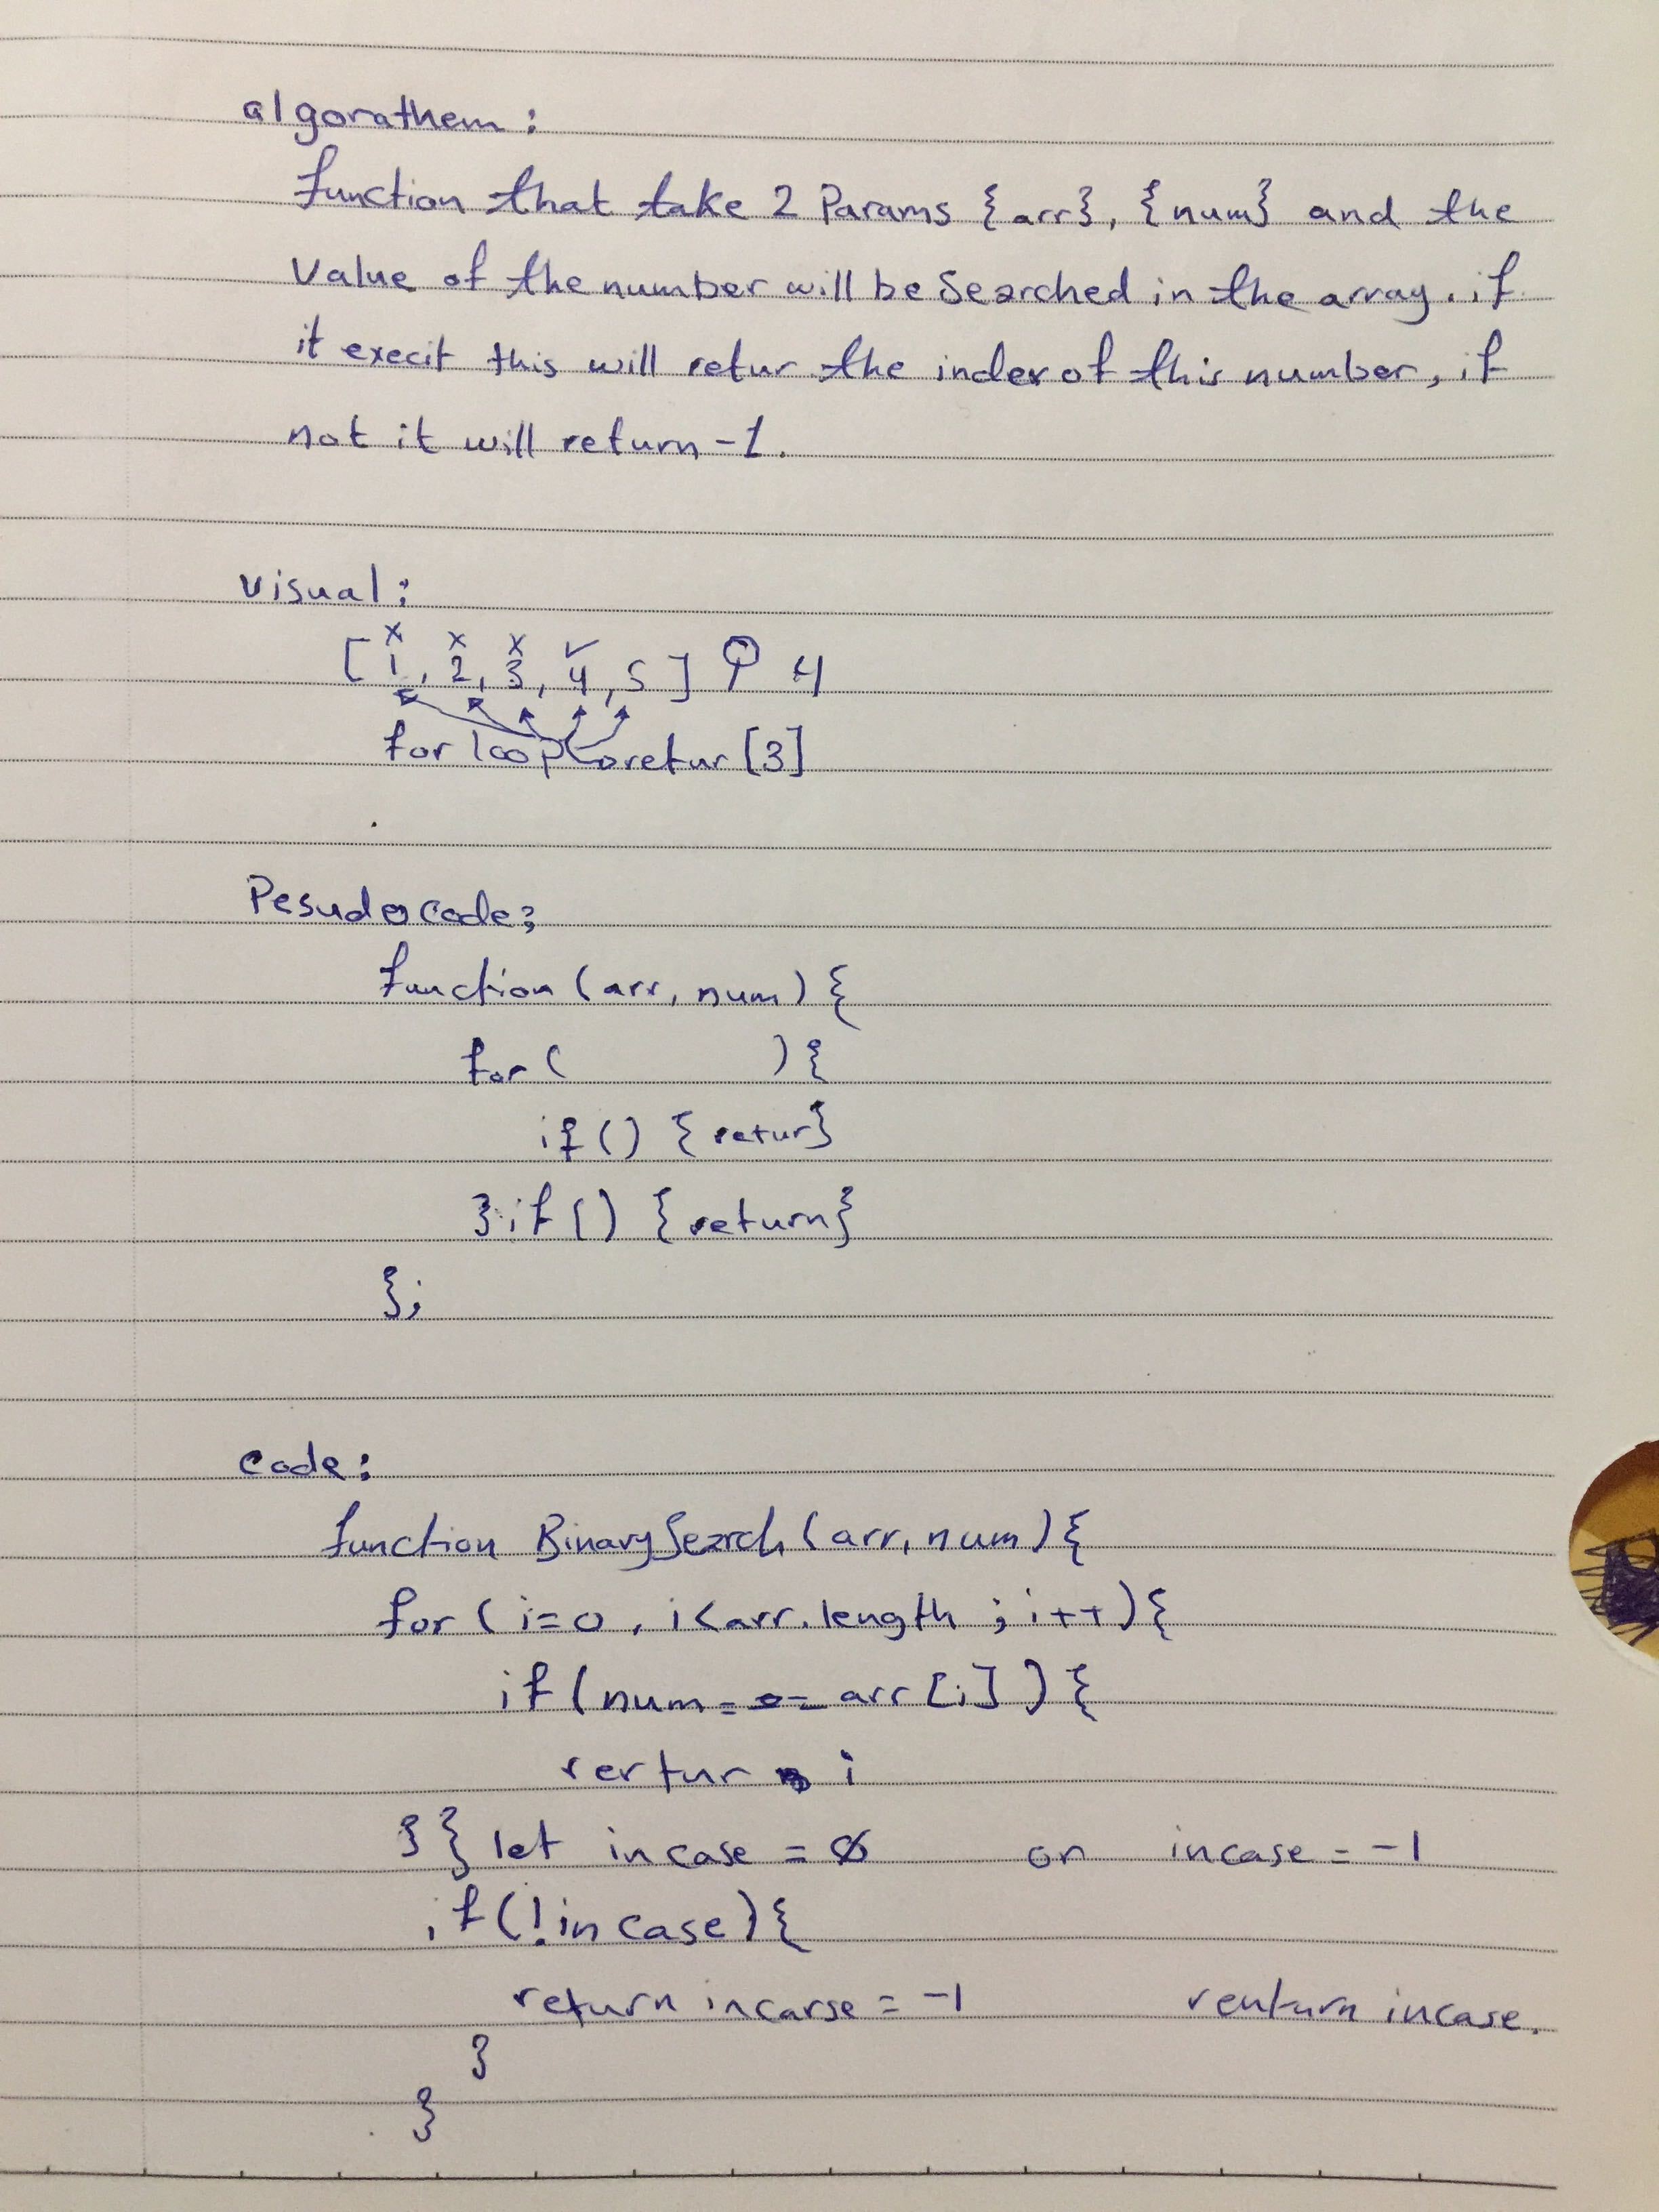 algorathem:
function that take 2 Params {arr}, {num} and the
Value of the number will be Searched in the array. if
it execit this will retur the index of this number, if
not it will return -1.
visual:
[1, 2, 3, 4, 5] 4
for loop retur [3]
Pesudo code:
function (arr, num) {
for ( ) {
if () { retur}
} if () { return}
};
code:
function BinarySearch (arr, num) {
for ( i=0 , i<arr.length ; i++) {
if (num === arr [i] ) {
rertur n i
} } let incase = 0 or incase = -1
if (!incase) {
return incarse = -1 renturn incase.
}
}